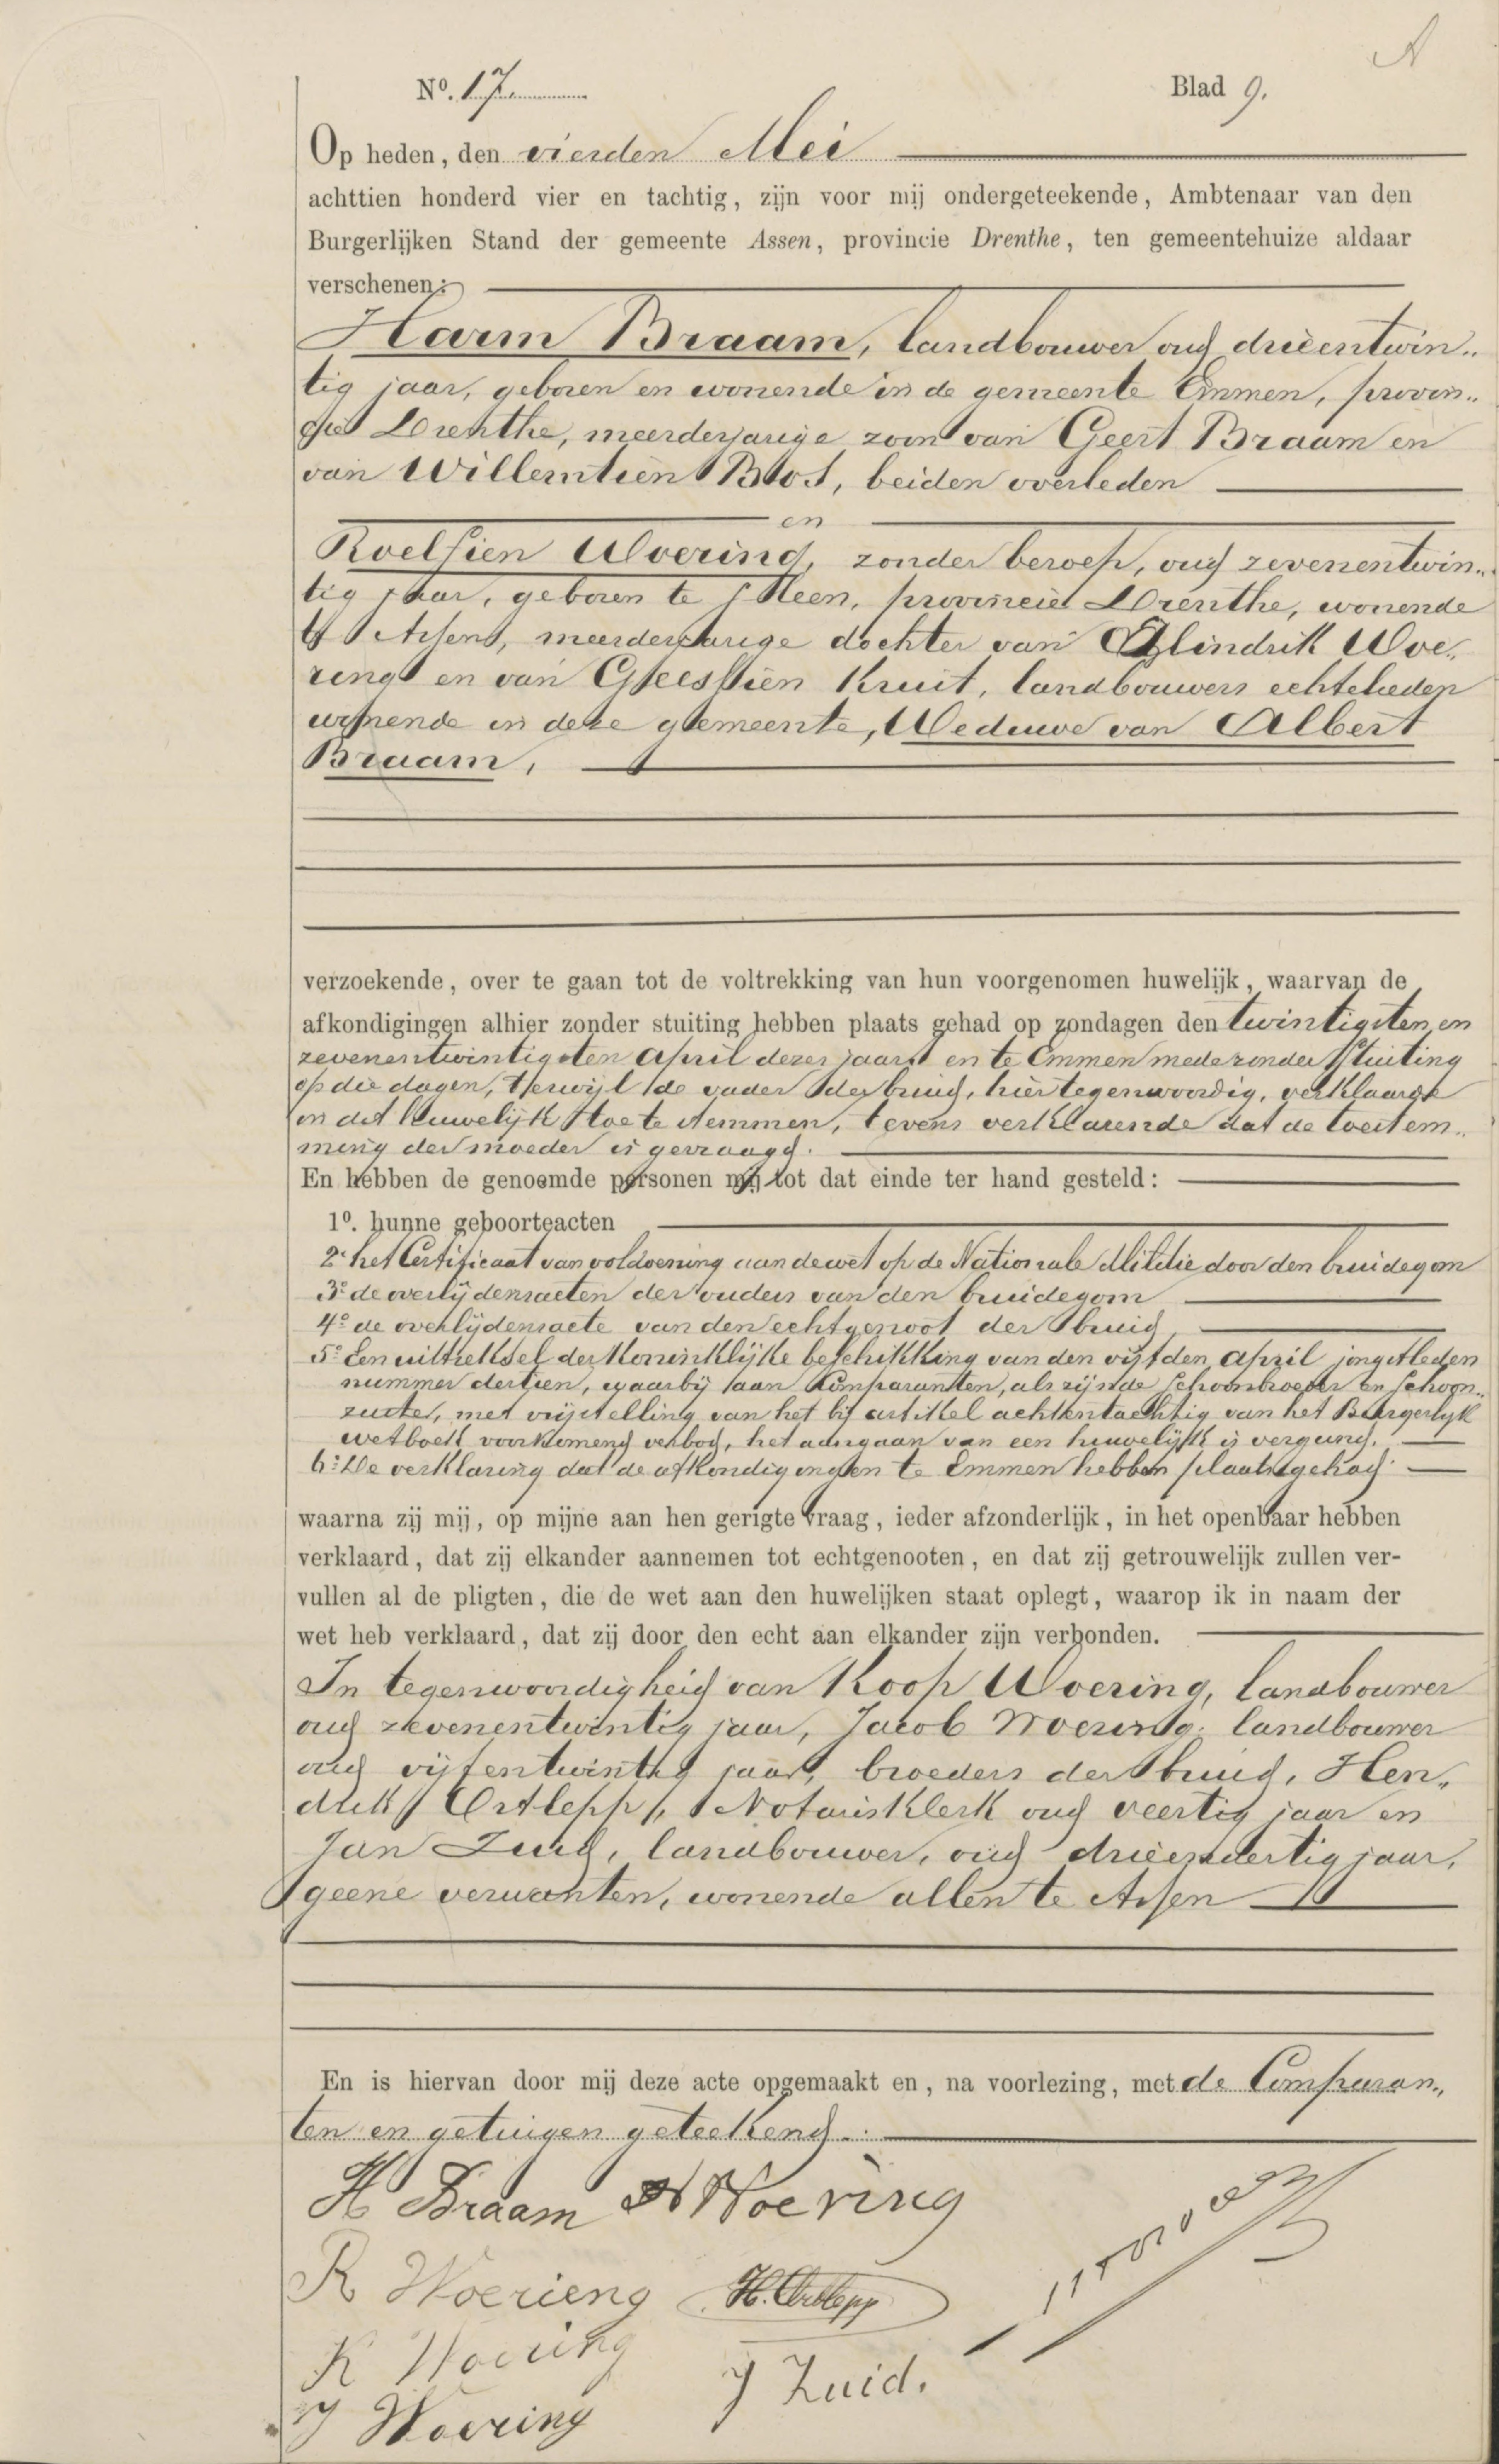 A
No. 17
Blad 9.
Op heden, den vierden Mei
achttien honderd vier en tachtig, zijn voor mij ondergeteekende, Ambtenaar van den
Burgerlijken Stand der gemeente Assen, provincie Drenthe, ten gemeentehuize aldaar
verschenen:
Harm Braam, landbouwer oud drieentwin„
tig jaar, geboren en wonende in de gemeente Emmen, provin„
cie Drenthe, meerderjarige zoon van Geert Braam en
van Willemtien Bos, beiden overleden
en
Roelfien Woering, zonder beroep, oud zevenentwin„
tig jaar, geboren te Sleen, provincie Drenthe, wonende
te Assen, meerderjarige dochter van Hindrik Woe„
ring en van Geessien Kruit, landbouwers echtelieden
wonende in deze gemeente, Weduwe van Albert
Braam,
verzoekende, over te gaan tot de voltrekking van hun voorgenomen huwelijk, waarvan de
afkondigingen alhier zonder stuiting hebben plaats gehad op zondagen den twintigsten en
zevenentwintigsten April dezes jaars en te Emmen mede zonder stuiting
op die dagen, terwijl de vader der bruid, hier tegenwoordig, verklaarde
in dit huwelijk toe te stemmen, tevens verklarende dat de toestem„
ming der moeder is gevraagd.
En hebben de genoemde personen mij tot dat einde ter hand gesteld:
1o. hunne geboorteacten
2o het Certificaat van voldoening aan de wet op de Nationale Militie door den bruidegom
3o de overlijdensacten der ouders van den bruidegom
4o de overlijdensacte van den echtgenoot der bruid
5o Een uittreksel der Koninklijke beschikking van den vijfden April jongstleden
nummer dertien, waarbij aan Comparanten, als zijnde schoonbroeder en schoon„
zuster, met vrijstelling van het bij artikel achtentachtig van het Burgerlijk
wetboek voorkomend verbod, het aangaan van een huwelijk is vergund.
6o De verklaring dat de afkondigingen te Emmen hebben plaatsgehad.
waarna zij mij, op mijne aan hen gerigte vraag, ieder afzonderlijk, in het openbaar hebben
verklaard, dat zij elkander aannemen tot echtgenooten, en dat zij getrouwelijk zullen ver-
vullen al de pligten, die de wet aan den huwelijken staat oplegt, waarop ik in naam der
wet heb verklaard, dat zij door den echt aan elkander zijn verbonden.
In tegenwoordigheid van Koop Woering, landbouwer
oud zevenentwintig jaar, Jacob Woering, landbouwer
oud vijfentwintig jaar, broeders der bruid, Hen„
drik Ortlepp, Notarisklerk oud veertig jaar en
Jan Zuid, landbouwer, oud drieendertig jaar,
geene verwanten, wonende allen te Assen
En is hiervan door mij deze acte opgemaakt en, na voorlezing, met de Comparan„
ten en getuigen geteekend.
H Braam H Woering
R Woerieng H. Ortlepp
K Woering
J Zuid.
J Woering